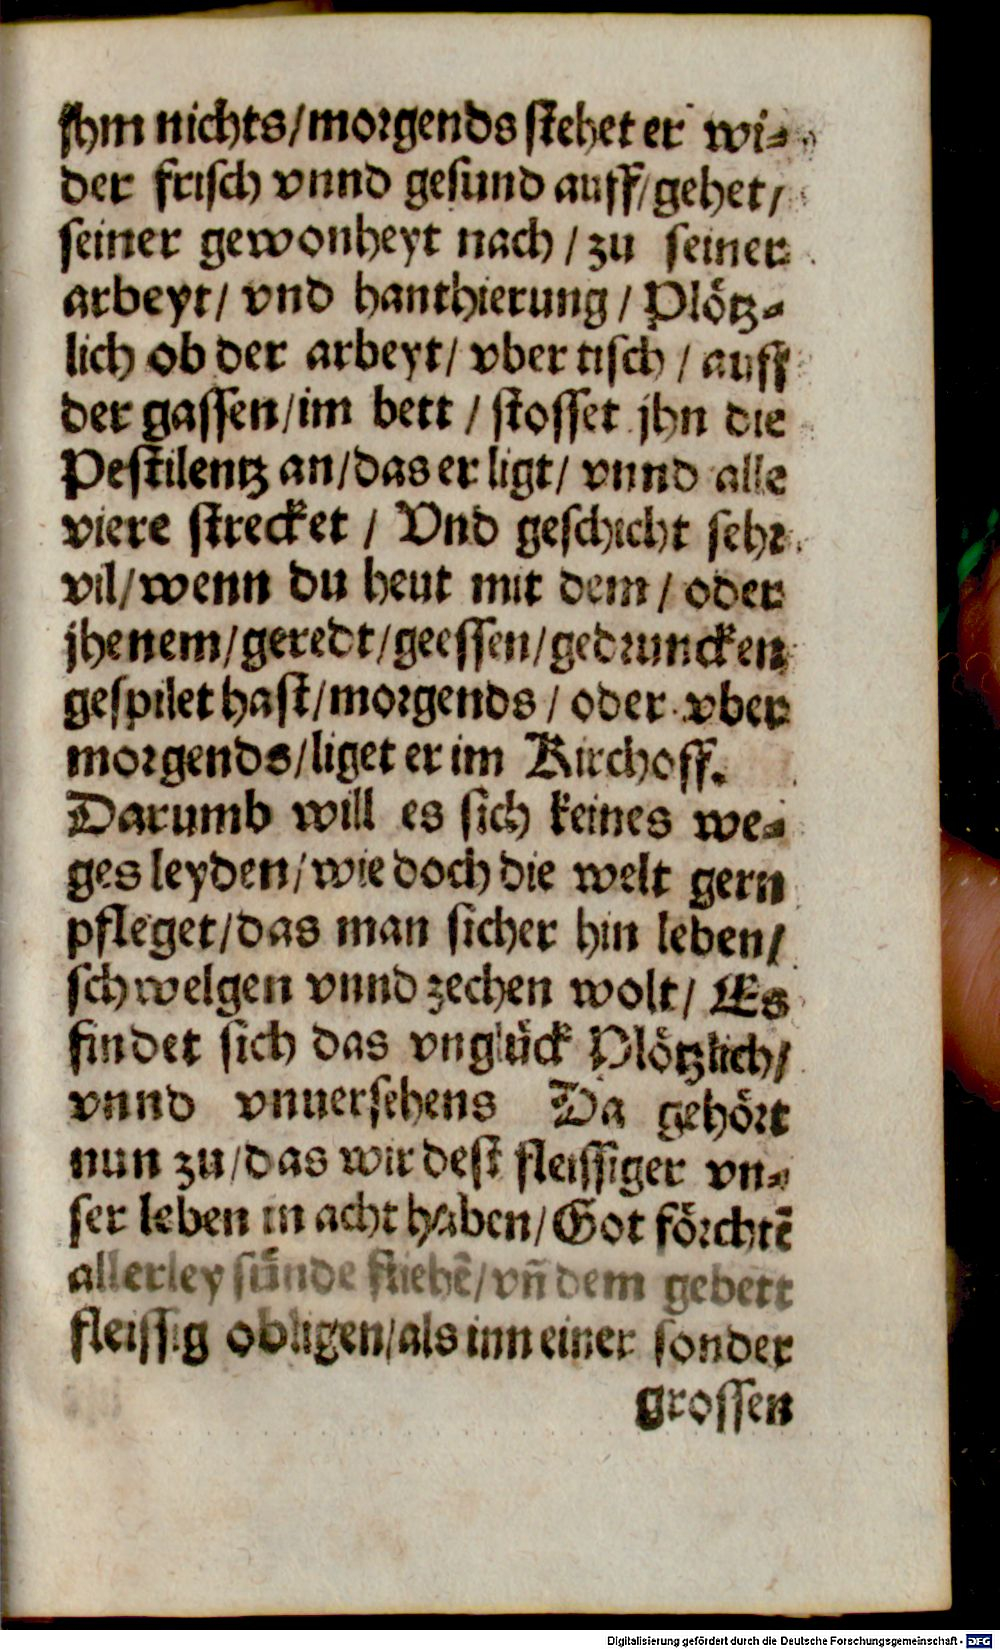 jhm nichts/morgends stehet er wi-
der frisch vnnd gesund auff/gehet/
seiner gewonheyt nach / zu seiner
arbeyt/ vnd hanthierung / Plötz-
lich ob der arbeyt/ vber tisch / auff
der gassen/im bett / stosset jhn die
Pestilentz an/das er ligt/ vnnd alle
viere strecket / Vnd geschicht sehr
vil/wenn du heut mit dem / oder
jhenem/geredt/geessen/gedruncken
gespilet hast/morgends / oder vber
morgends/liget er im Kirchoff.
Darumb will es sich keines we-
ges leyden/wie doch die welt gern
pfleget/das man sicher hin leben/
schwelgen vnnd zechen wolt/ Es
findet sich das vnglück Plötzlich/
vnnd vnuersehens Da gehört
nun zu/das wir dest fleissiger vn-
ser leben in acht haben/Got förchtē
allerley sünde fliehē/vn̄ dem gebett
fleissig obligen/als inn einer sonder
grossen
Digitalisierung gefördert durch die Deutsche Forschungsgemeinschaft - DFG